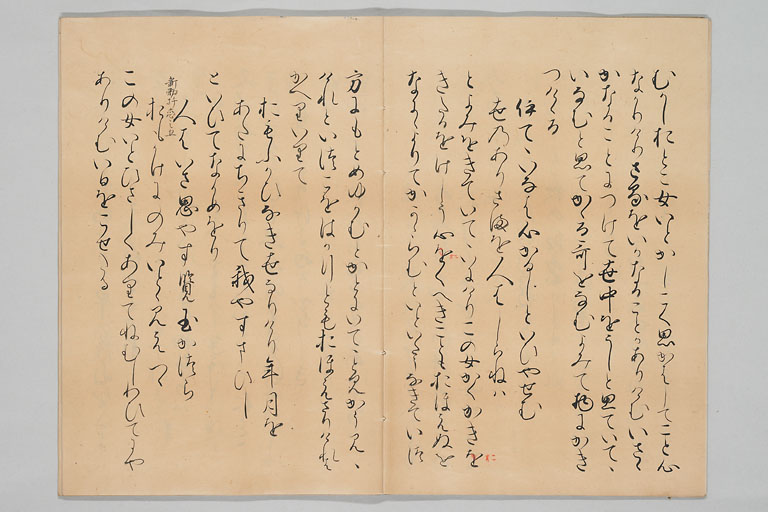 むかしおとこ女いとかしこく思かはしてこと心
なかりけりさるをいかなることかありけむいさゝ
かなることにつけて世中をうしと思ていてゝ
いなむと思てかゝる哥をなむよみて物にかき
つけける
いてゝいなは心かるしといひやせむ
世のありさまを人はしらねは
とよみをきていてゝいにけりこの女かくかきを
きたるをけしう心をくへきこともおほえぬを
なにゝよりてかかゝらむといといたうなきていつ
方にもとめゆかむとかとにいてゝと見かう見ゝ
けれといつこをはかりともおほえさりけれは
かへりいりて
おもふかひなき世なりけり年月を
あたにちきりて我やすまひし
といひてなかめをり
人はいさ思やす覧玉かつら
おもかけにのみいとゝ見えつゝ
この女いとひさしくありてねむしわひてにや
ありけむいひをこせたる